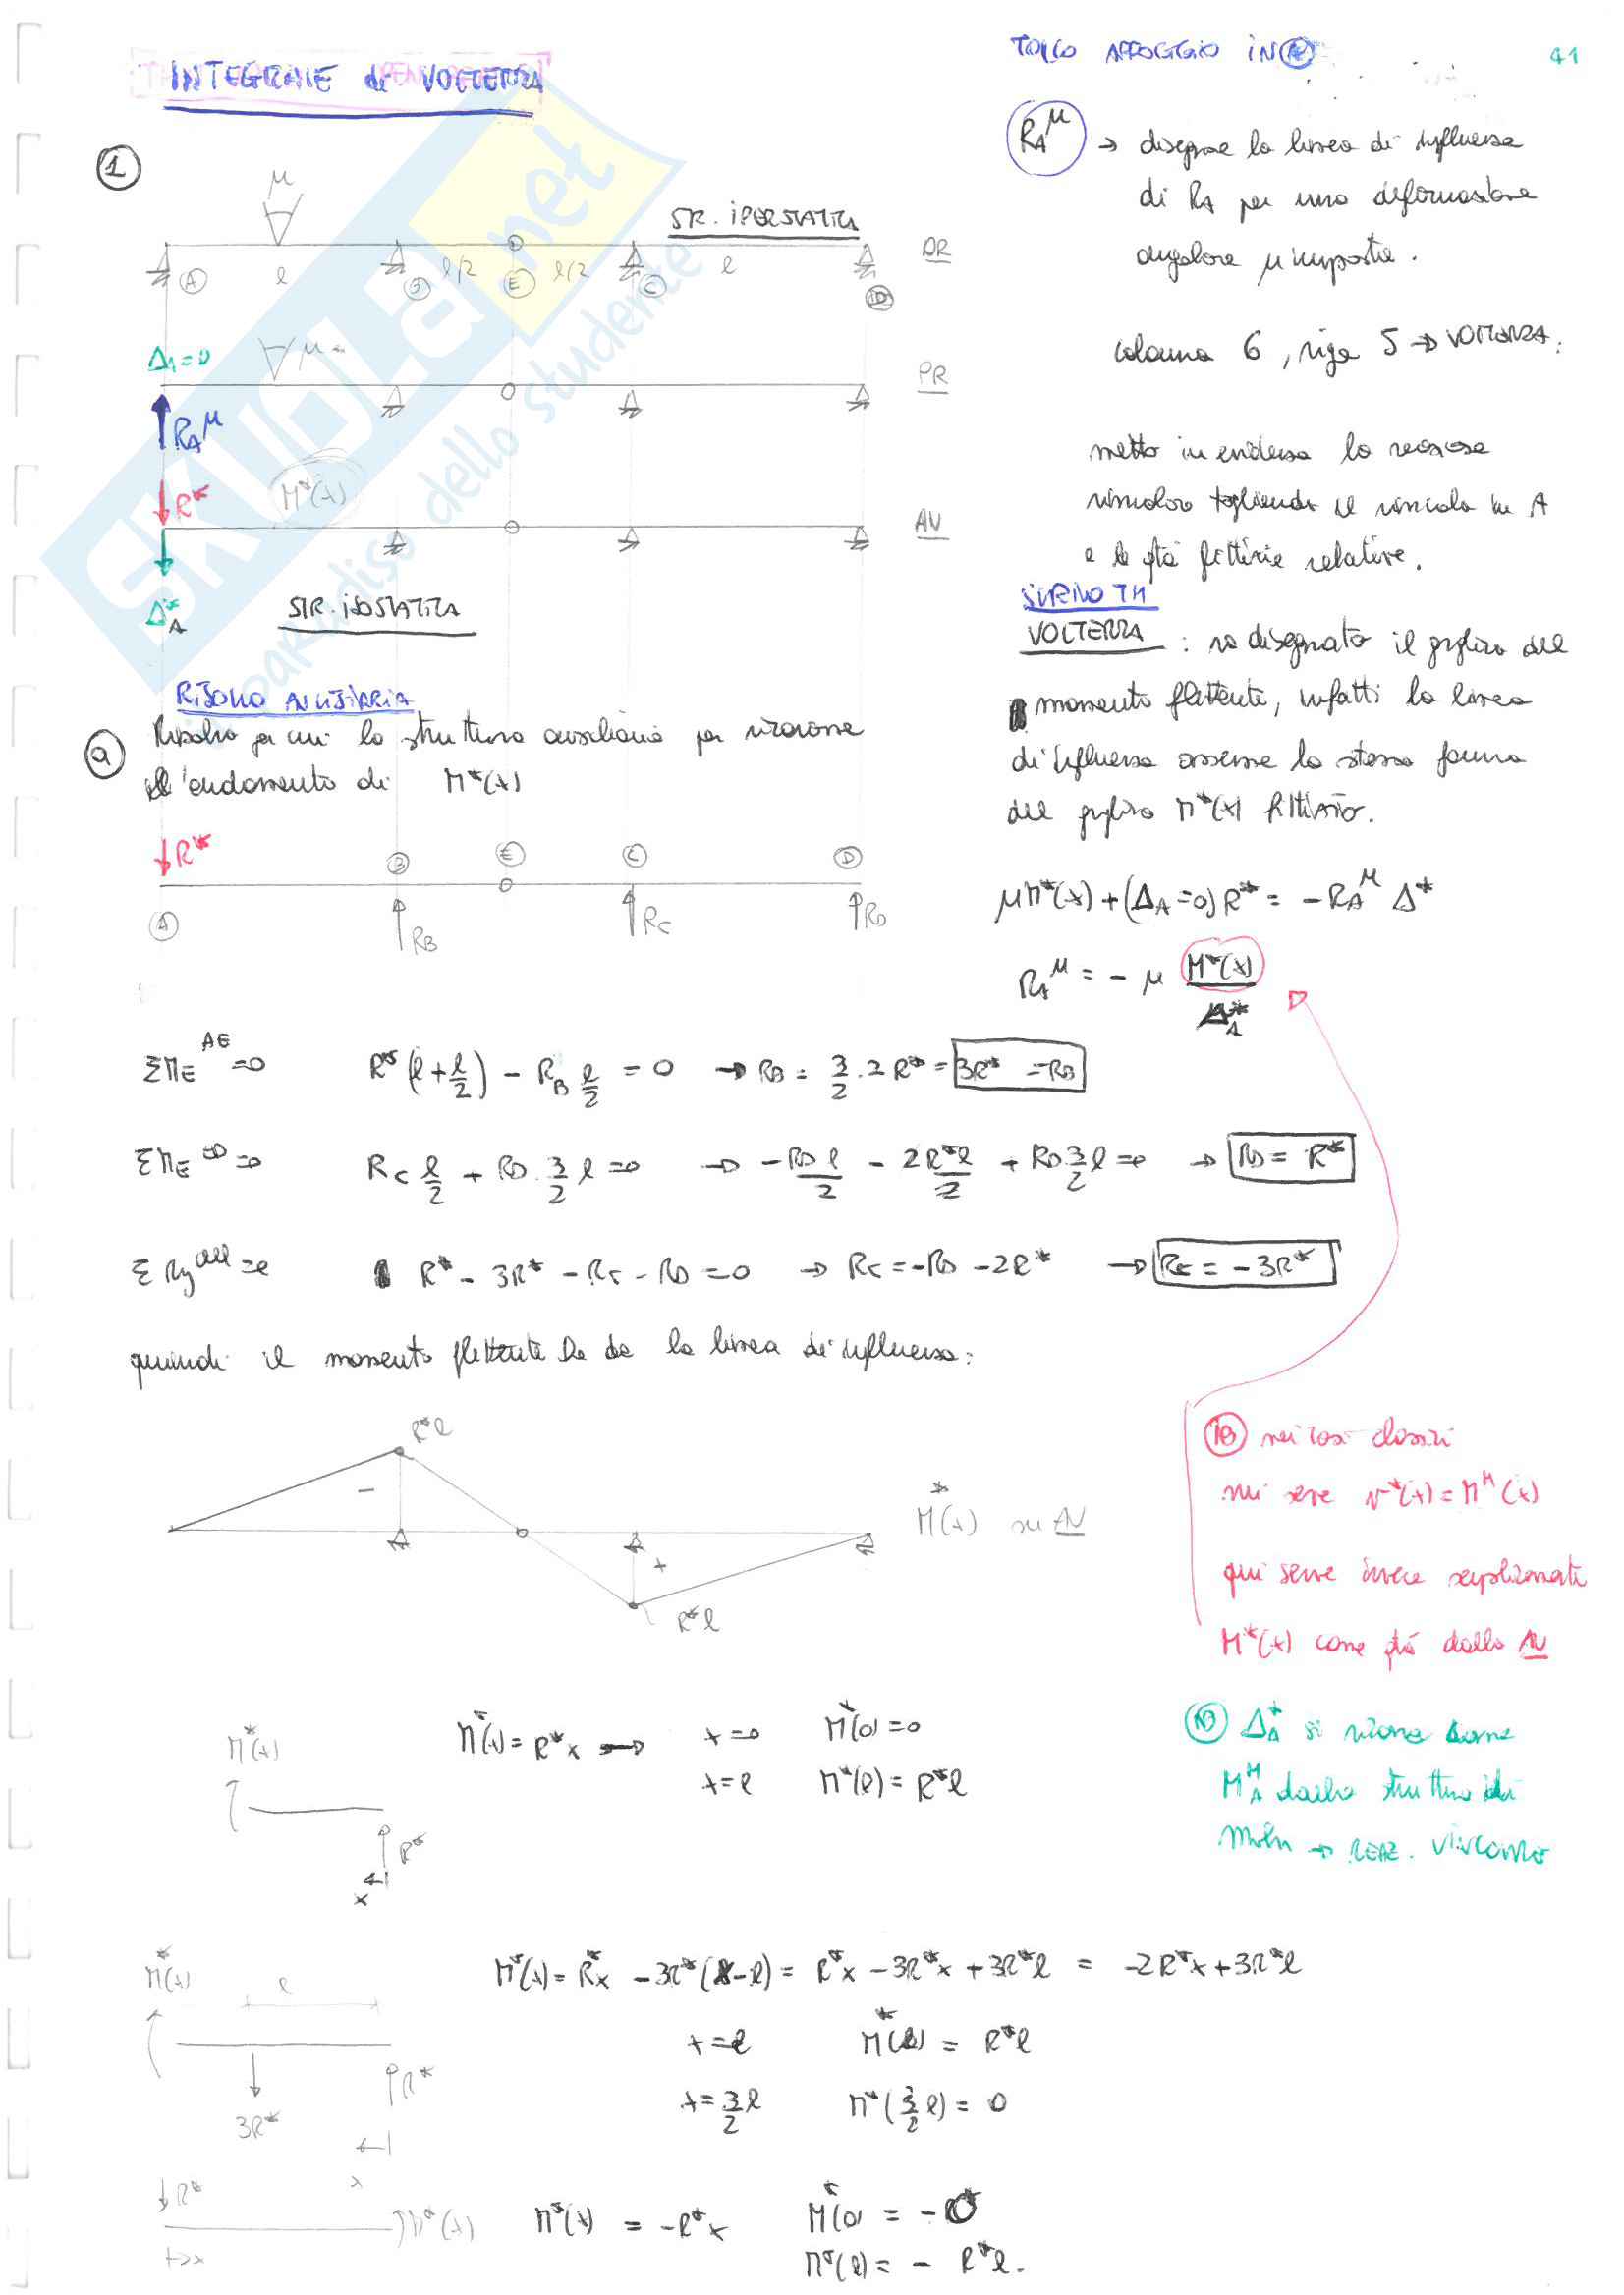 INTEGRALE di VOLTERRA
TOLGO APPOGGIO IN A
41
1
μ
STR. IPERSTATICA
DR
A
l
B
l/2
E
l/2
C
l
D
RAμ → disegnare la linea di influenza
di RA per una deformazione
angolare μ imposta.
colonna 6, riga 5 → VOLTERRA.
Δ1=0
μ
PR
RAμ
R*
M*(x)
AU
Δ*A
STR. ISOSTATICA
metto in evidenza la reazione
vincolare togliendo il vincolo in A
e le qtà fittizie relative.
SCRIVO TH
VOLTERRA : va disegnato il grafico del
momento flettente, infatti la linea
di influenza assume la stessa forma
del grafico M*(x) fittizio.
RISOLVO AUSILIARIA
a
Risolvo per cui la struttura ausiliaria per ricavare
l'andamento di M*(x)
R*
B
E
C
D
A
RB
RC
RD
μM*(x) + (ΔA=0)R* = -RAμ Δ*
RAμ = - μ M*(x)/Δ*A
ΣME AE=0 R*(l+l/2) - RB l/2 = 0 → RB = 3/2 · 2R* = 3R* =RB
ΣME ED=0 RC l/2 + RD · 3/2 l=0 → -RD l/2 - 2R*l/2 + RD 3/2 l=0 → RD = R*
ΣRy all=0 R* - 3R* - RC - RD = 0 → RC = -RD - 2R* → RC = -3R*
quindi il momento flettente che dà la linea di influenza:
R*l
-
+
R*l
M*(x) su AU
NB nei casi classici
mi serve v*(x) = Mμ(x)
qui serve invece semplicemente
M*(x) come qtà dalla AU
NB Δ*A si ricava come
MμA dalla struttura di
Mohr → REAZ. VINCOLARE
M*(x)
R*
x
M*(x) = R*x → x=0 M*(0)=0
x=l M*(l) = R*l
M*(x)
l
3R*
R*
x
M*(x) = R*x - 3R*(x-l) = R*x - 3R*x + 3R*l = -2R*x + 3R*l
x=l M*(l) = R*l
x=3/2 l M*(3/2 l) = 0
R*
→x
M*(x)
M*(x) = -R*x M*(0) = -0
M*(l) = - R*l.
SKUOLA.net
il paradiso dello studente